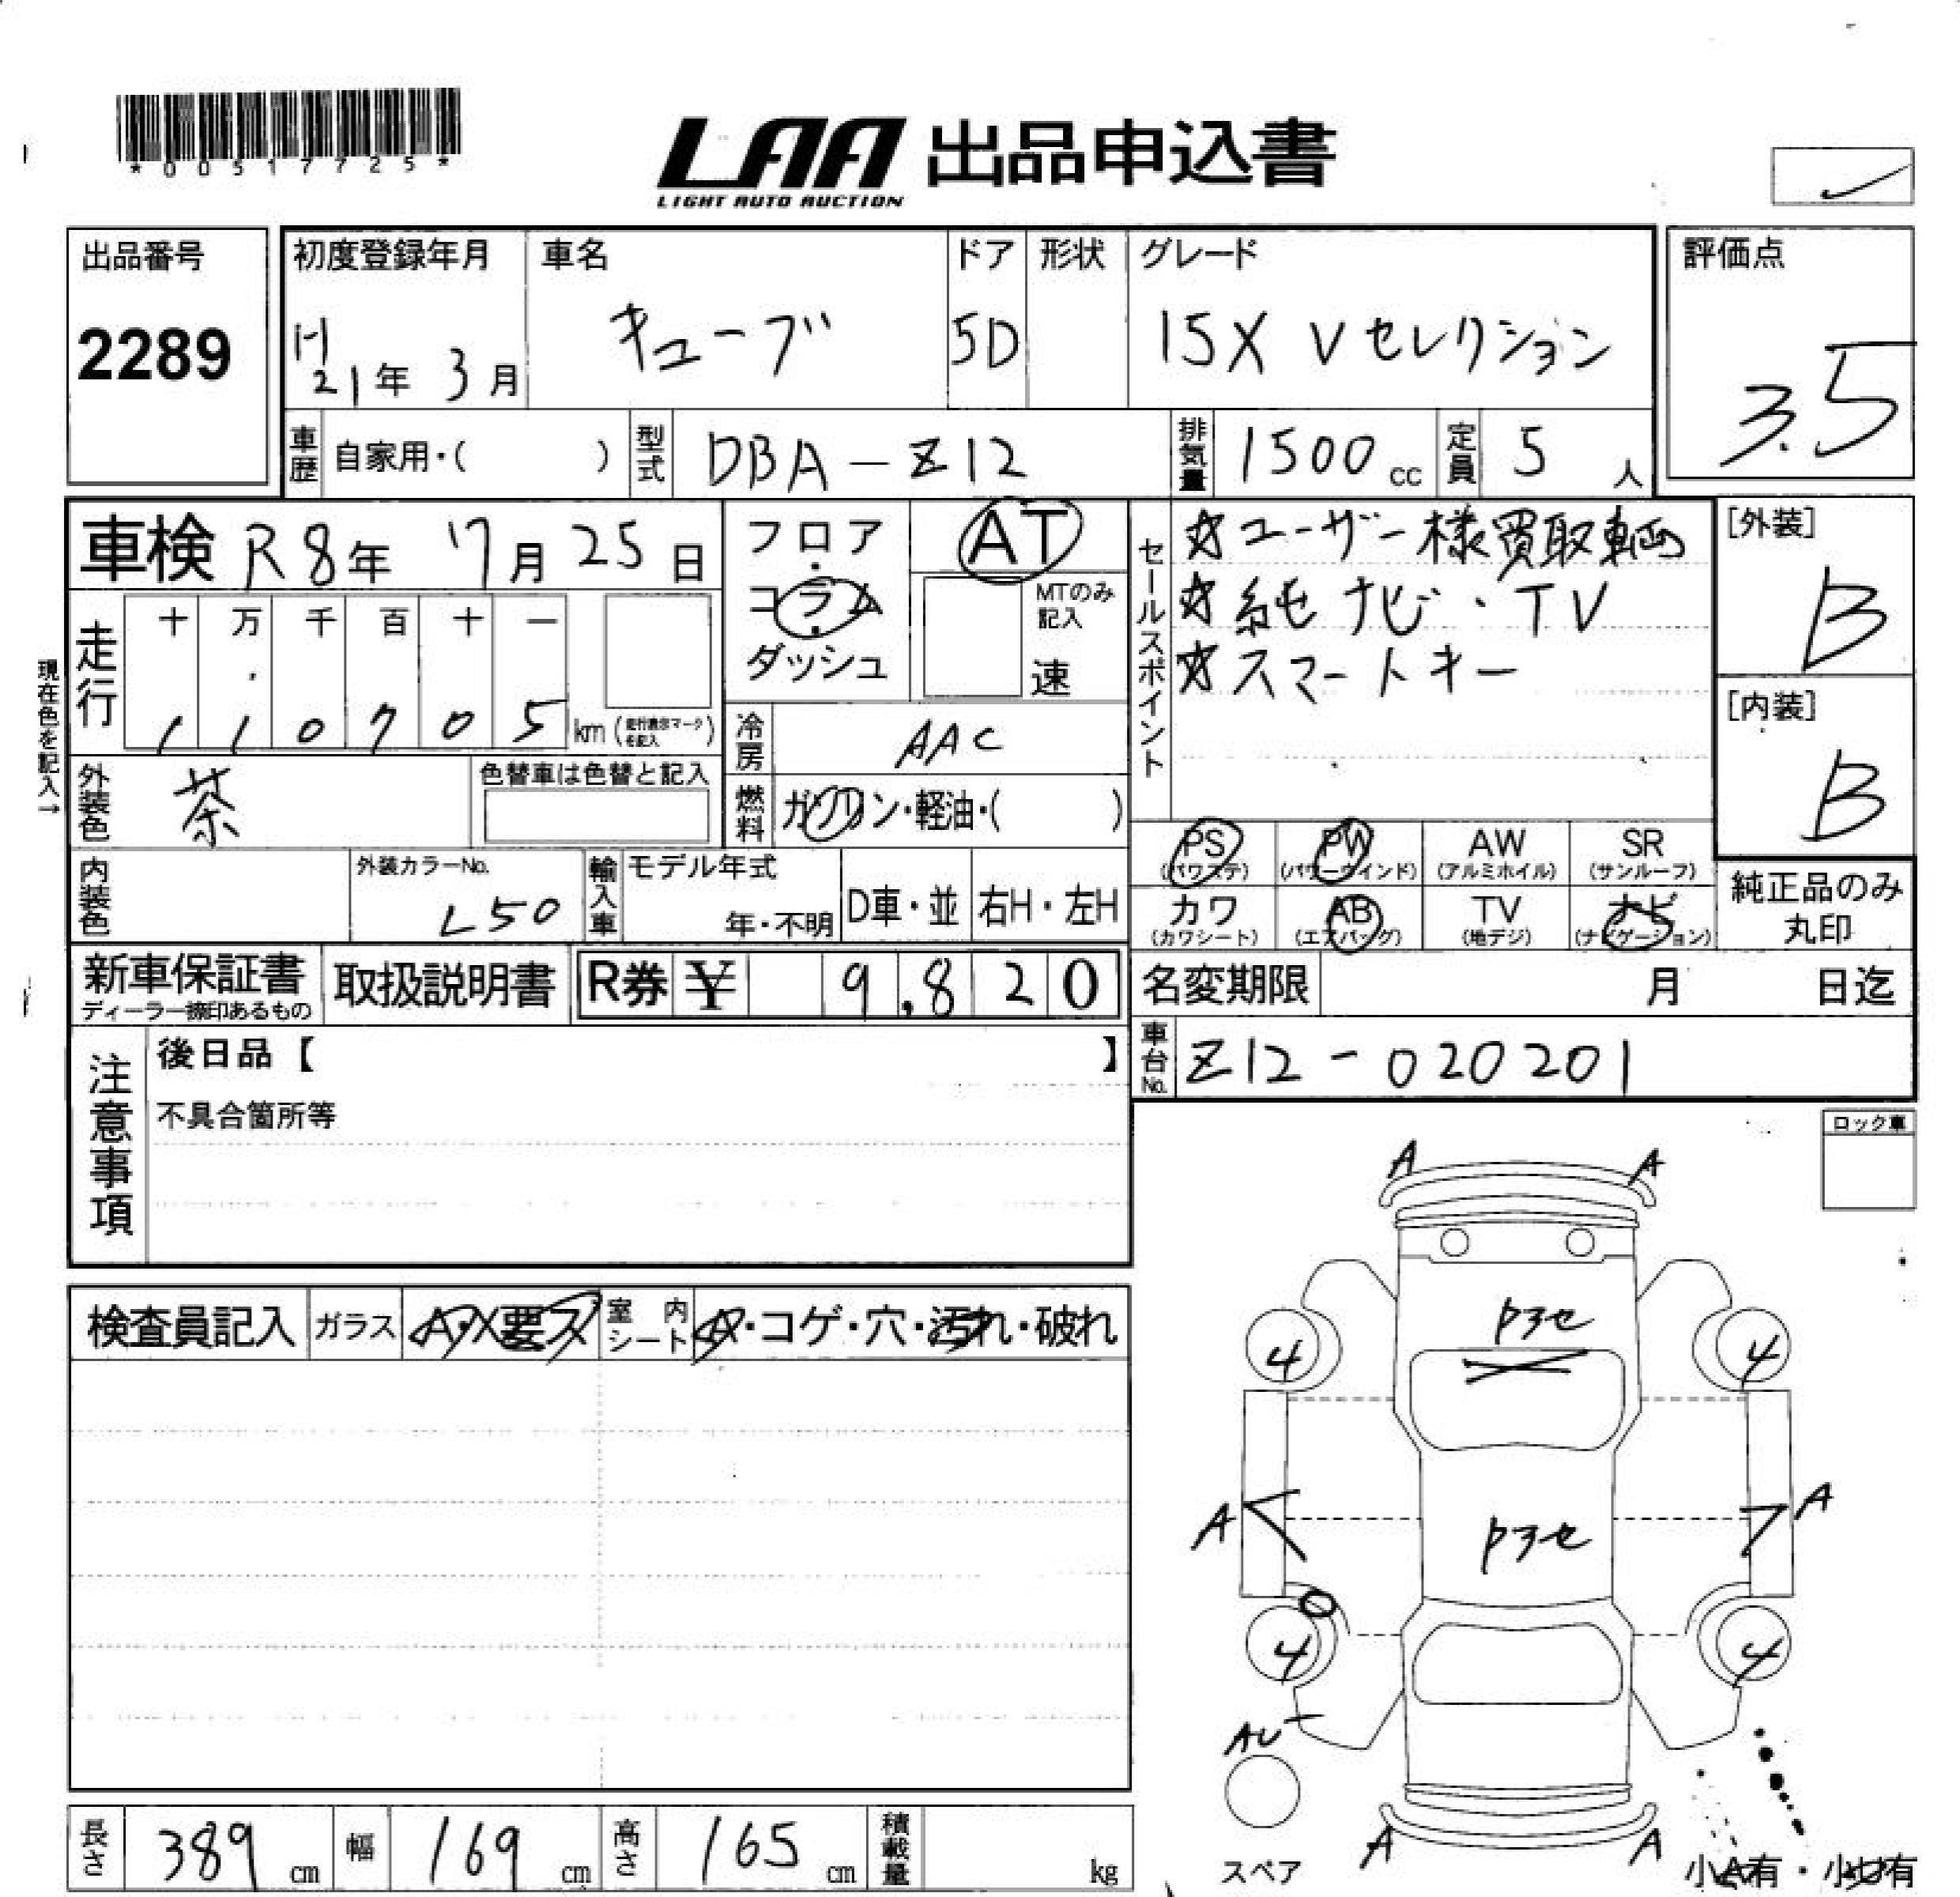 *00517725*
LAA 出品申込書
LIGHT AUTO AUCTION
出品番号
2289
初度登録年月
H21年 3月
車名
キューブ
ドア
5D
形状
グレード
15X Vセレクション
評価点
3.5
車歴 自家用・( )
型式 DBA-Z12
排気量 1500 cc
定員 5 人
車検 R8年 7月 25日
フロア・コラム・ダッシュ
AT
MTのみ記入
速
セールスポイント
☆ユーザー様買取車輌
☆純ナビ・TV
☆スマートキー
[外装]
B
[内装]
B
現在色を記入→
走行
十 万 千 百 十 一
1 1 0 7 0 5 km (走行表示マークを記入)
冷房 AAC
外装色 茶
色替車は色替と記入
燃料 ガソリン・軽油・( )
内装色
外装カラーNo.
L50
輸入車
モデル年式
年・不明
D車・並
右H・左H
PS (パワステ)
PW (パワーウインド)
AW (アルミホイル)
SR (サンルーフ)
カワ (カワシート)
AB (エアバッグ)
TV (地デジ)
ナビ (ナビゲーション)
純正品のみ丸印
新車保証書
ディーラー捺印あるもの
取扱説明書
R券 ¥ 9,820
名変期限 月 日迄
車台No. Z12-020201
注意事項
後日品【 】
不具合箇所等
ロック車
検査員記入
ガラス A・X要ス
室内シート A・コゲ・穴・汚れ・破れ
A A
4 4
A A
4 4
AU
A A
スペア
小A有・小U有
長さ 389 cm
幅 169 cm
高さ 165 cm
積載量 kg